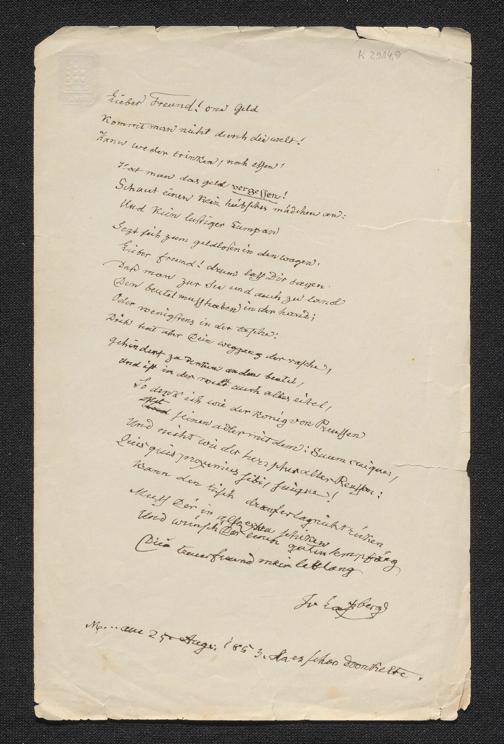 K 2914,8
Lieber Freund! one Geld
Kommt man nicht durch die welt!
Kann weder trinken, noch essen!
Hat man das geld vergessen!
Schaut einen kein hübsches mädchen an:
Und kein lustiger Cumpan
Sezt sich zum geldlosen in den wagen.
Lieber freund! drum lass Dir sagen
Dass man zur See und auch zu land
Den beutel muss haben in der hand;
Oder wenigstens in der tasche:
Doch hat aber Dein weggang der rasche,
gehindert zu denken an den beutel,
Und ist in der welt auch alles eitel,
So denk ich wie der König von Preussen
seinen adler mit dem: Suum cuique,
Und nicht wie der alte Reussen:
Quisquis proximus sibi, fuique!
kann den tisch nicht
Muss Dir in
Und wünsch Dir einen guten empfang
Dein freund mein leblang
am 25 Aug. 1853.